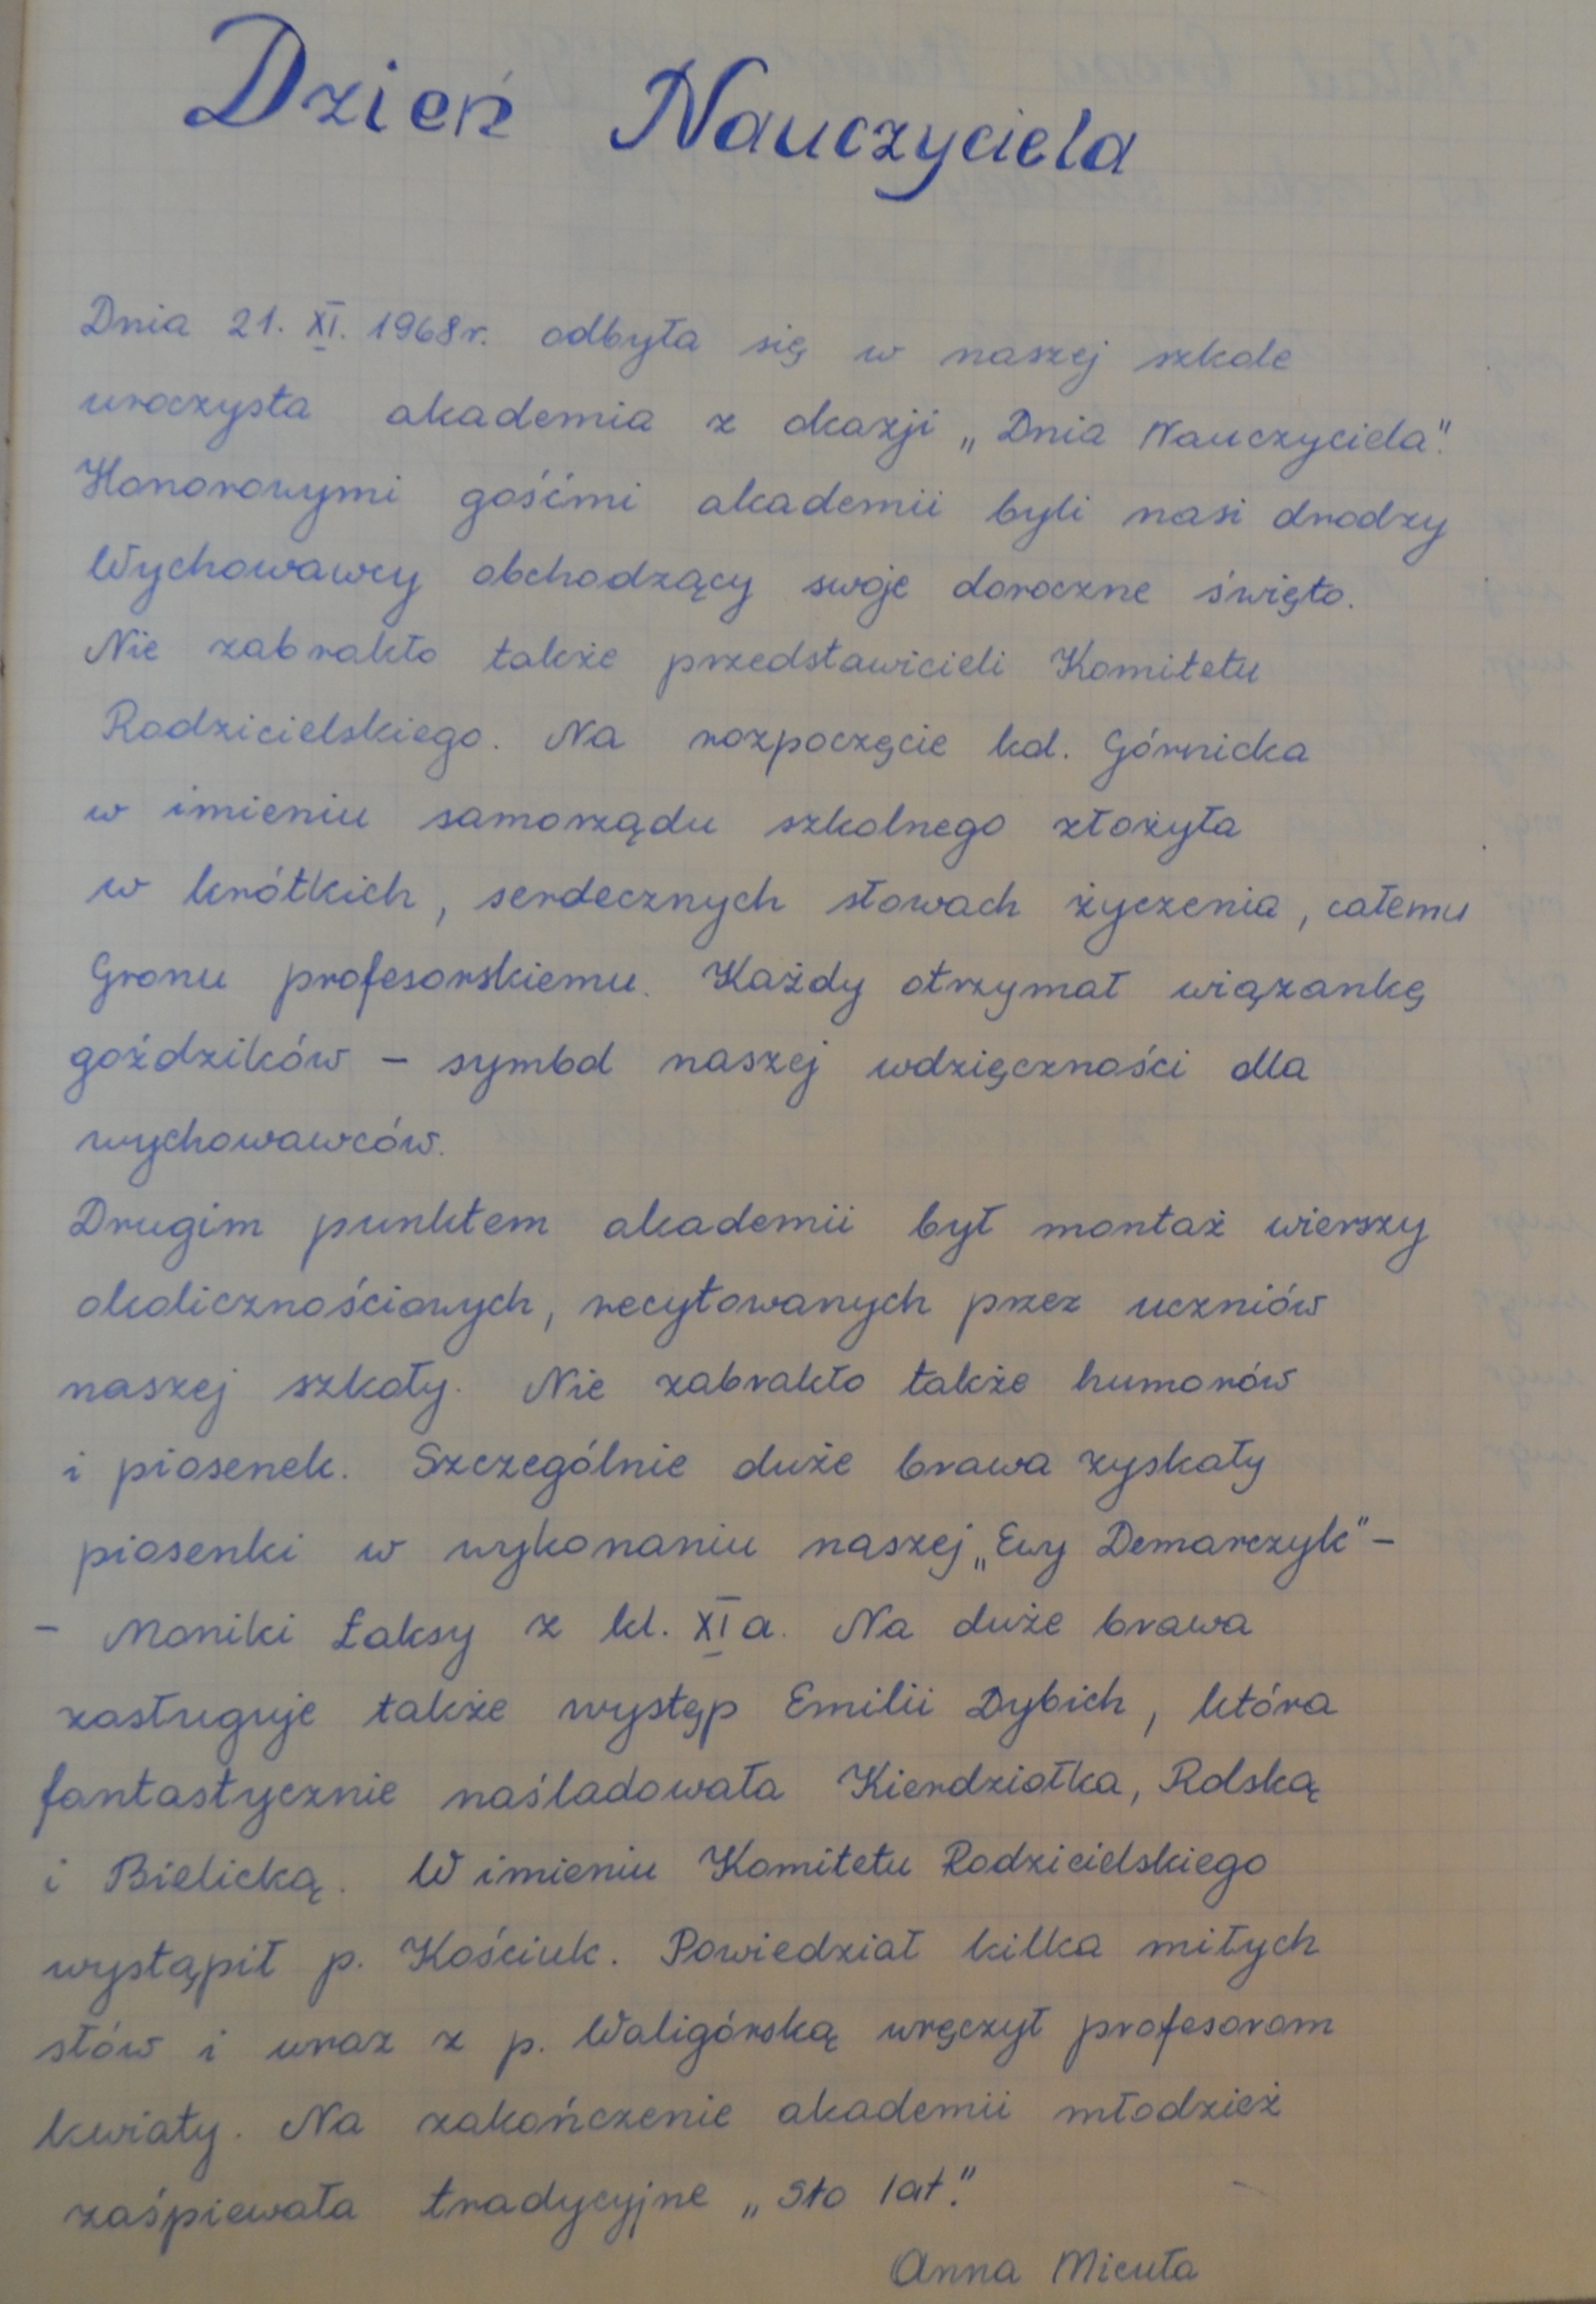 Dzień Nauczyciela
Dnia 21. XI. 1968r. odbyła się w naszej szkole
uroczysta akademia z okazji „Dnia Nauczyciela".
Honorowymi gośćmi akademii byli nasi drodzy
Wychowawcy obchodzący swoje doroczne święto.
Nie zabrakło także przedstawicieli Komitetu
Rodzicielskiego. Na rozpoczęcie kol. Górnicka
w imieniu samorządu szkolnego złożyła
w krótkich, serdecznych słowach życzenia, całemu
Gronu profesorskiemu. Każdy otrzymał wiązankę
goździków – symbol naszej wdzięczności dla
wychowawców.
Drugim punktem akademii był montaż wierszy
okolicznościowych, recytowanych przez uczniów
naszej szkoły. Nie zabrakło także humorów
i piosenek. Szczególnie duże brawa zyskały
piosenki w wykonaniu naszej „Ewy Demarczyk" –
– Moniki Łaksy z kl. XI a. Na duże brawa
zasługuje także występ Emilii Dybich, która
fantastycznie naśladowała Kierdziołka, Rolską
i Bielicką. W imieniu Komitetu Rodzicielskiego
wystąpił p. Kościuk. Powiedział kilka miłych
słów i wraz z p. Waligórską wręczył profesorom
kwiaty. Na zakończenie akademii młodzież
zaśpiewała tradycyjne „Sto lat".
Anna Micuła